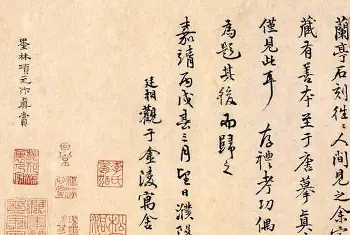 蘭亭石刻往〻人間見之余家
藏有善本至于唐摹真
僅見此耳 存禮考功偶
為題其後而歸之
嘉靖丙戌春三月望日濮陽
廷相觀于金陵寓舍
墨林項元汴真賞